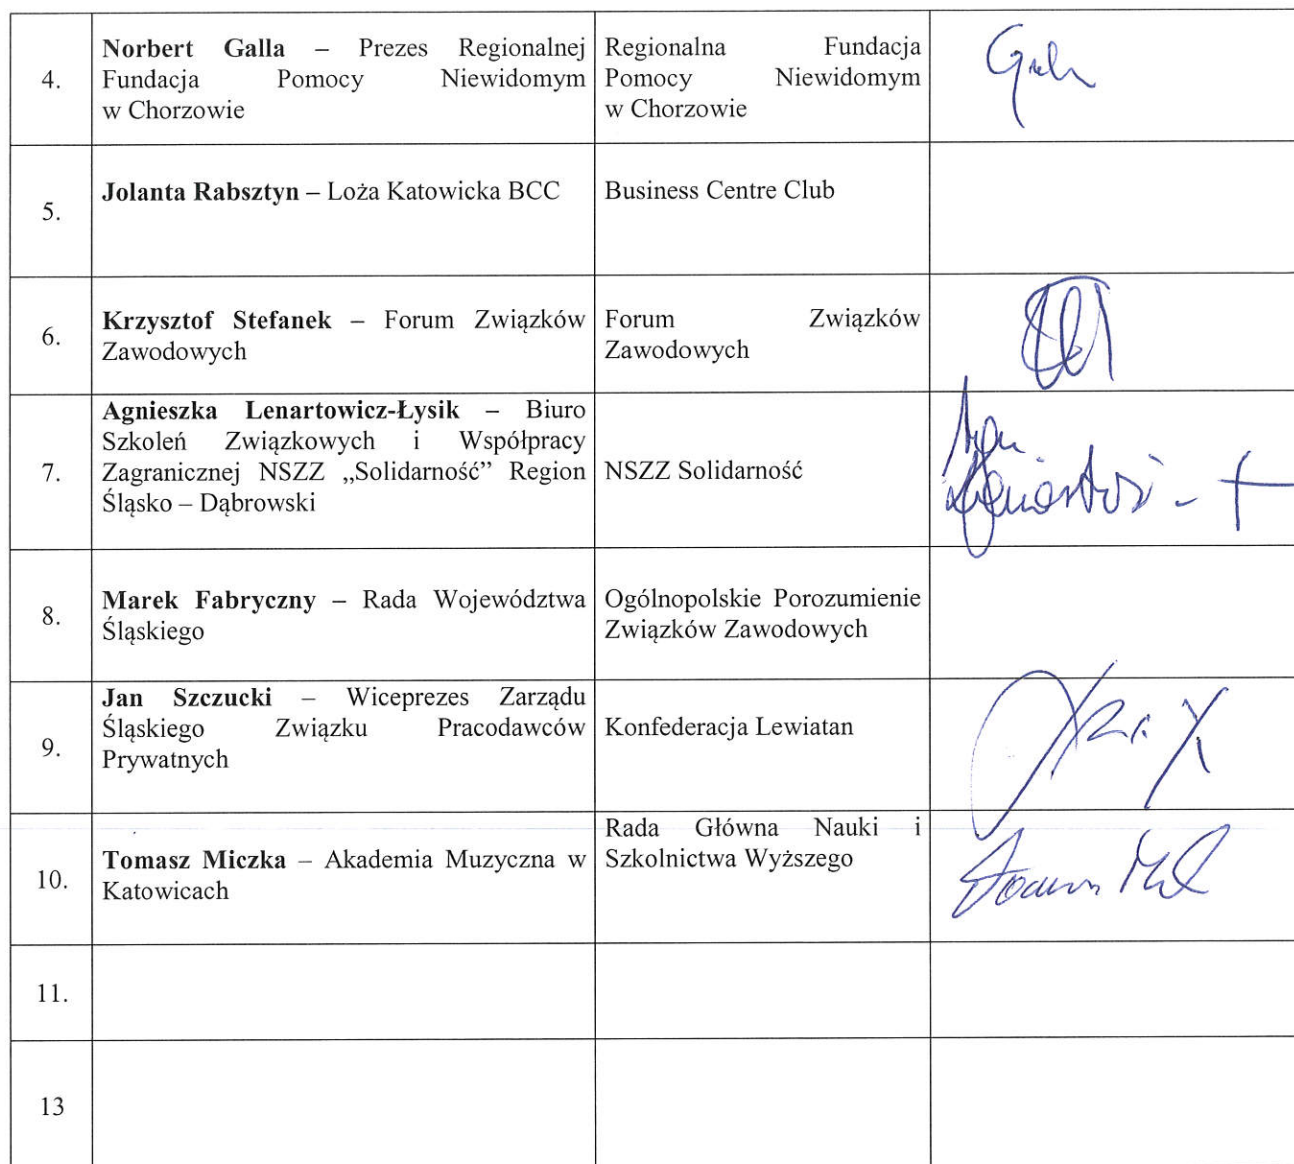 4.
Norbert Galla – Prezes Regionalnej
Fundacja Pomocy Niewidomym
w Chorzowie
Regionalna Fundacja
Pomocy Niewidomym
w Chorzowie
5.
Jolanta Rabsztyn – Loża Katowicka BCC
Business Centre Club
6.
Krzysztof Stefanek – Forum Związków
Zawodowych
Forum Związków
Zawodowych
7.
Agnieszka Lenartowicz-Łysik – Biuro
Szkoleń Związkowych i Współpracy
Zagranicznej NSZZ „Solidarność” Region
Śląsko – Dąbrowski
NSZZ Solidarność
8.
Marek Fabryczny – Rada Województwa
Śląskiego
Ogólnopolskie Porozumienie
Związków Zawodowych
9.
Jan Szczucki – Wiceprezes Zarządu
Śląskiego Związku Pracodawców
Prywatnych
Konfederacja Lewiatan
10.
Tomasz Miczka – Akademia Muzyczna w
Katowicach
Rada Główna Nauki i
Szkolnictwa Wyższego
11.
13